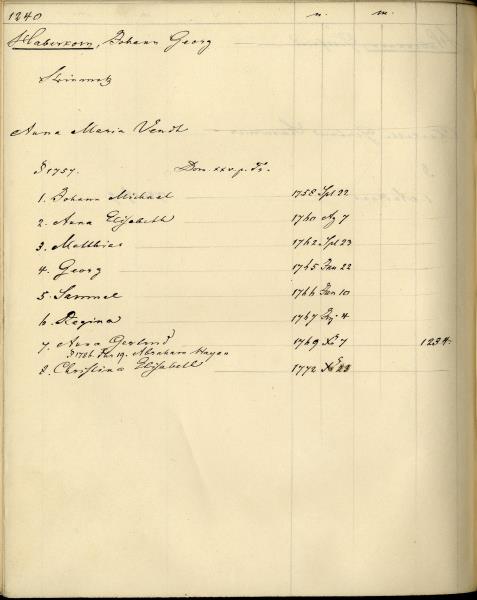 1240 n. m.
Haberkorn, Johann Georg
Steinmetz
Anna Maria Vendt
1757. Dom. xxv. p. Tr.
1. Johann Michael 1758 Spt 22
2. Anna Elisabeth 1760 Ag 7
3. Matthias 1762 Spt 23
4. Georg 1765 Jan 22
5. Samuel 1766 Jan 10
6. Regina 1767 4
7. Anna 1769 Xb 7 1234.
1786 19. Abraham Hayen
8. Christina Elisabeth 1772 Xb 22